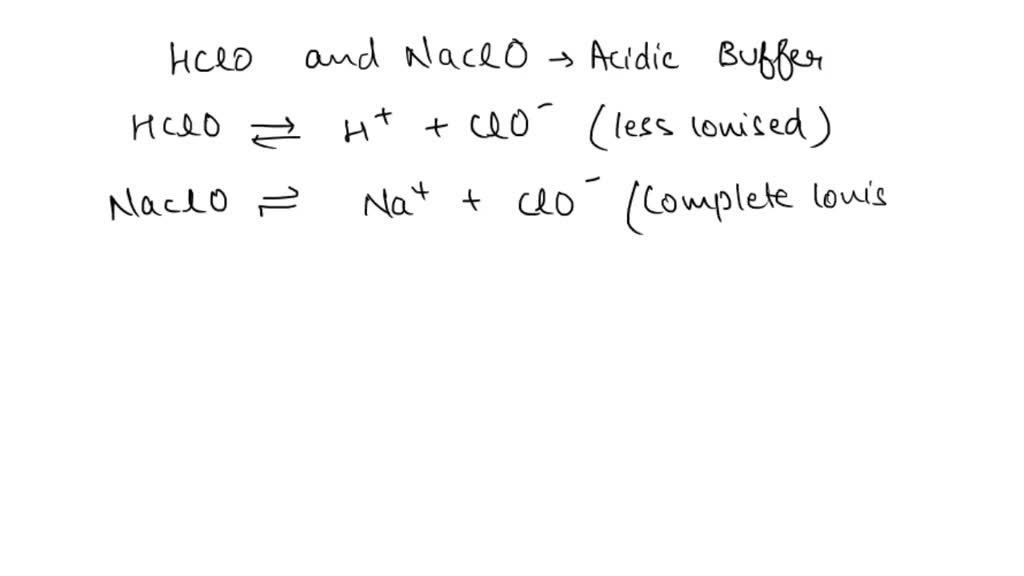 HClO and NaClO → Acidic Buffer
HClO ⇌ H⁺ + ClO⁻ (less Ionised)
NaClO ⇌ Na⁺ + ClO⁻ (Complete Ionis